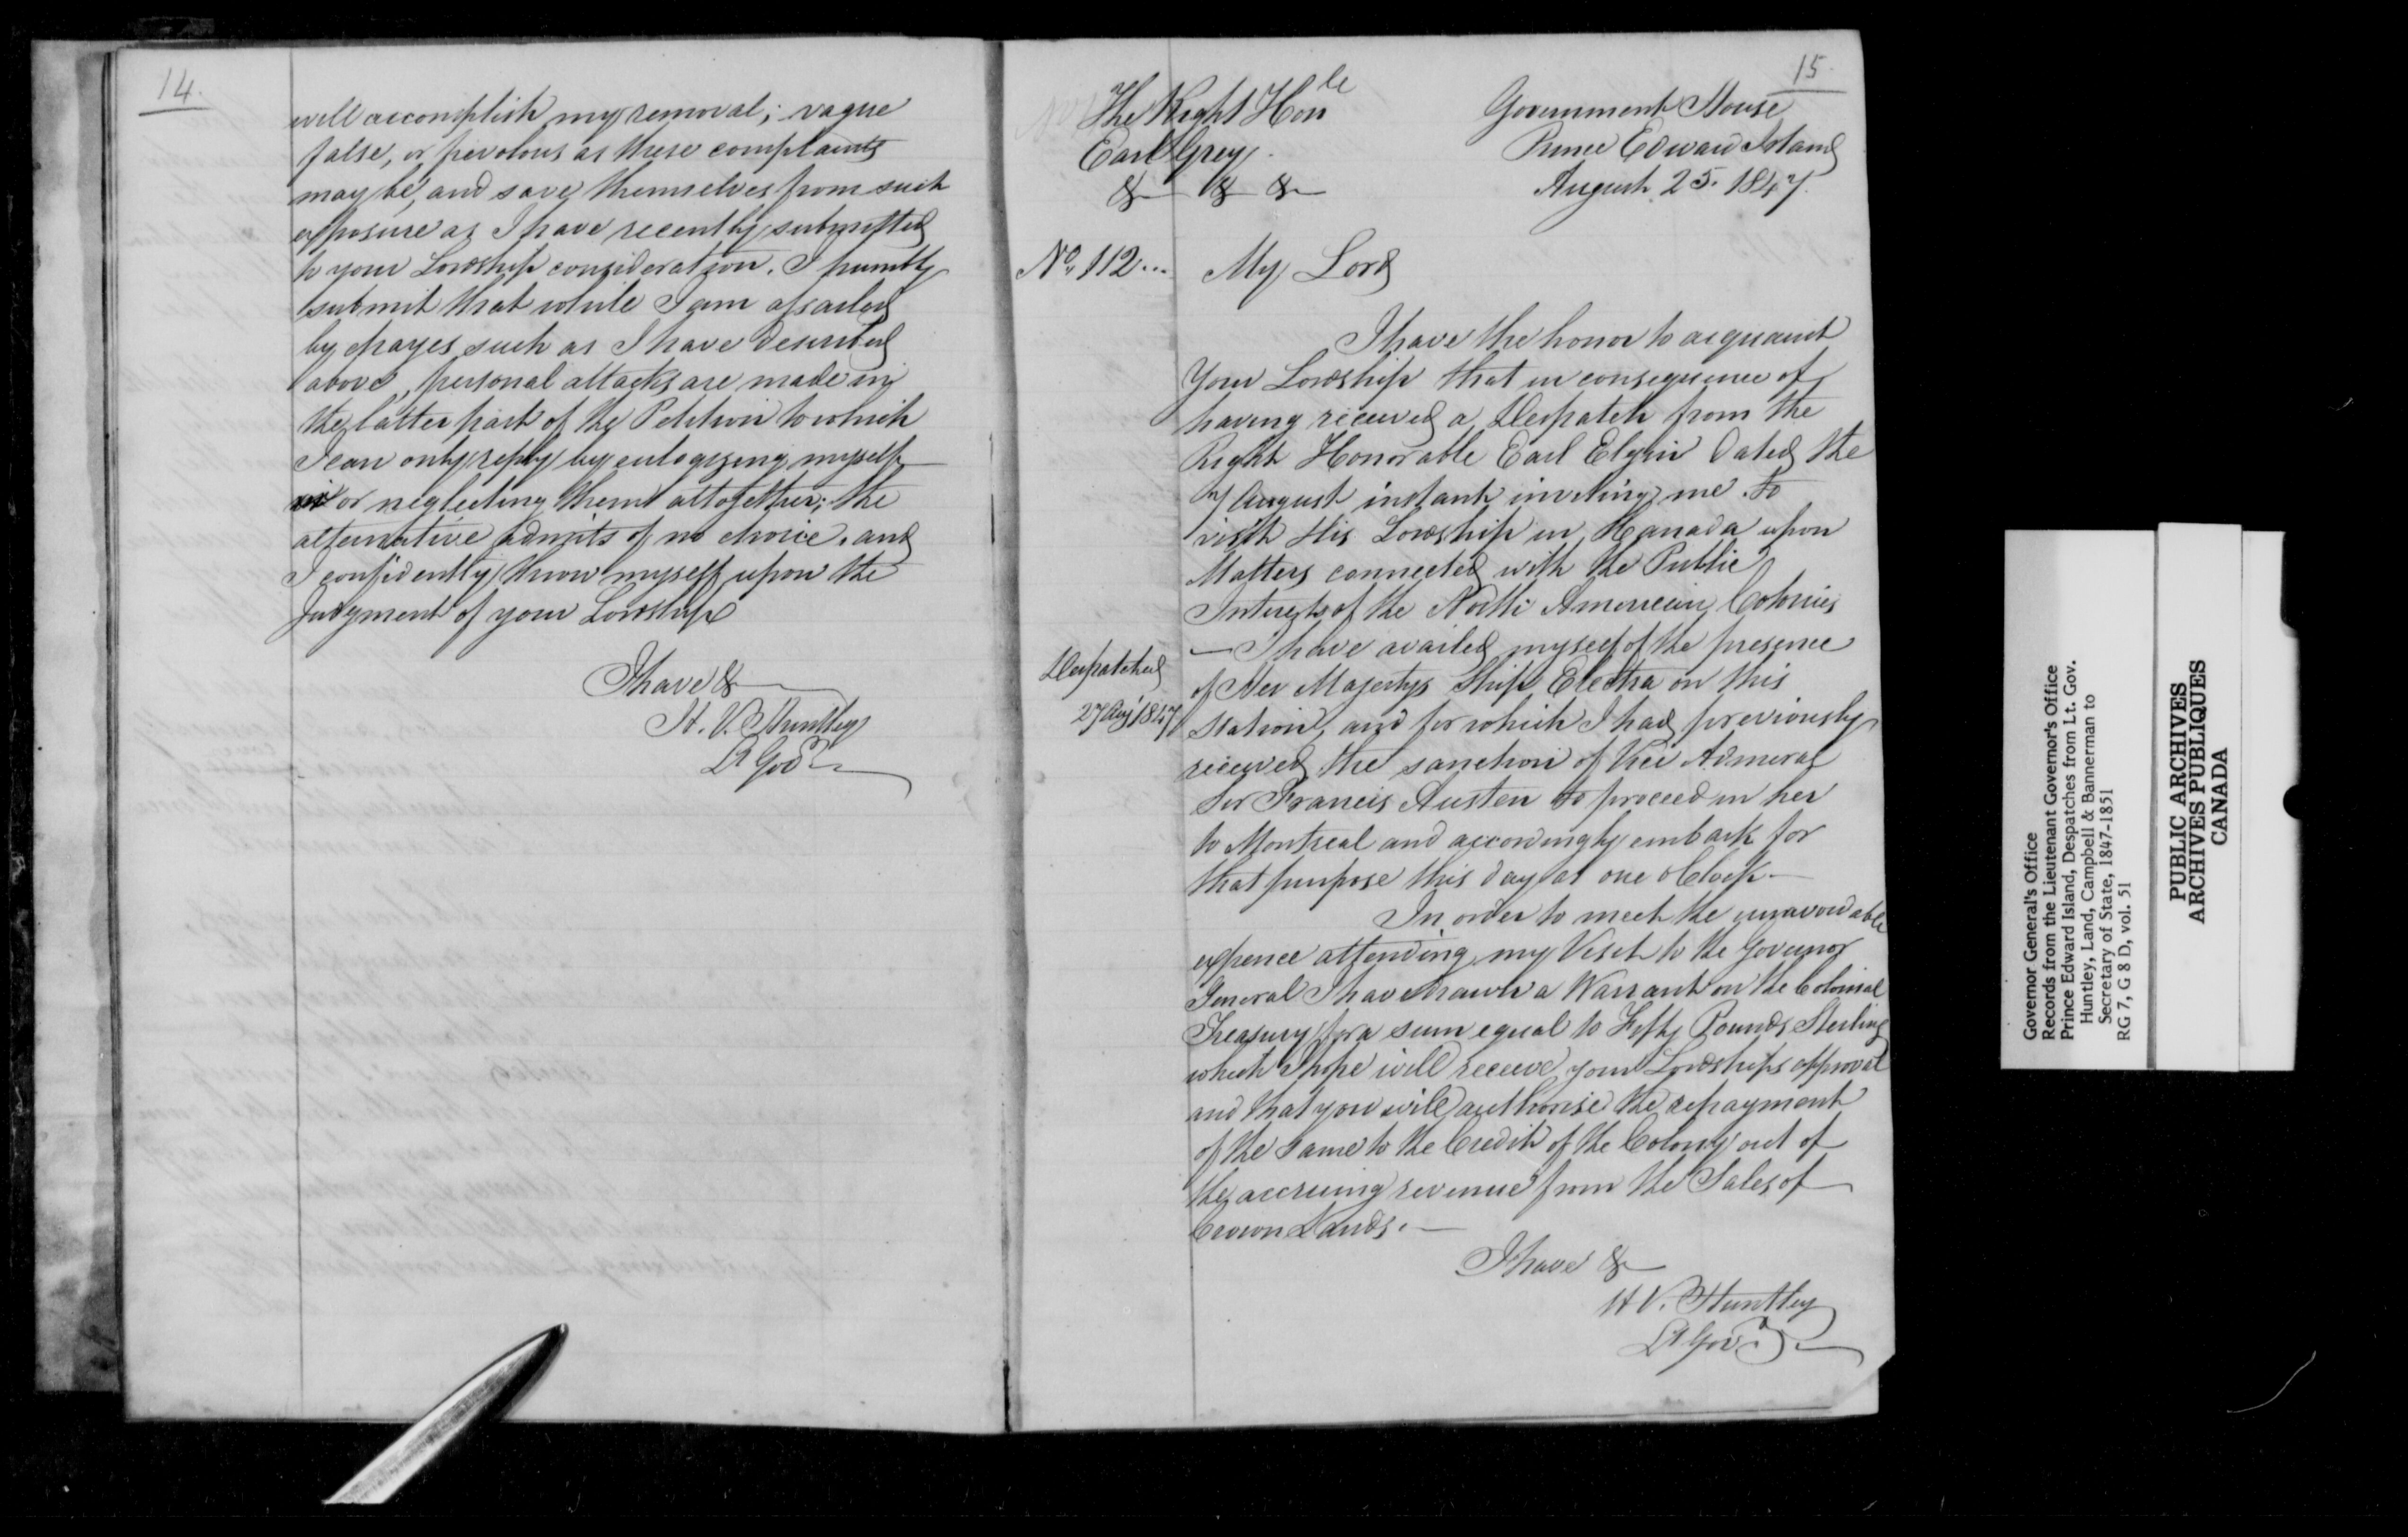 14.
will accomplish my removal; vague
false, or frivolous as these complaints
may be, and save themselves from such
exposure as I have recently submitted
to your Lordship consideration. I humbly
submit that while I am assailed
by charges such as I have described
above, personal attacks are made in
the latter part of the Petition to which
I can only reply by eulogizing myself
or neglecting them altogether; the
alternative admits of no choice. and
I confidently throw myself upon the
Judgment of your Lordship
I have &
H. V. Huntley
Lt Govr
15.
The Right Honle
Earl Grey.
& & &
Government House
Prince Edward Island
August 25. 1847.
No. 112...
My Lord
I have the honor to acquaint
Your Lordship that in consequence of
having received a Despatch from the
Right Honorable Earl Elgin Dated the
7 August instant inviting me to
visit His Lordship in Canada upon
Matters connected with the Public
Interests of the North American Colonies
— I have availed myself of the presence
Despatched
27 Aug 1847
of Her Majestys Ship Electra on this
Station, and for which I had previously
received the sanction of Vice Admiral
Sir Francis Austen to proceed in her
to Montreal and accordingly embark for
that purpose this day at one oClock —
In order to meet the unavoidable
expence attending my Visit to the Governor
General I have drawn a Warrant on the Colonial
Treasury for a sum equal to Fifty Pounds Sterling
which I hope will receive your Lordships approval
and that you will authorise the repayment
of the same to the Credit of the Colony out of
the accruing revenue from the Sales of
Crown Lands. —
I have &
H V. Huntley
Lt Govr
Governor General's Office
Records from the Lieutenant Governor's Office
Prince Edward Island, Despatches from Lt. Gov.
Huntley, Land, Campbell & Bannerman to
Secretary of State, 1847-1851
RG 7, G 8 D, vol. 51
PUBLIC ARCHIVES
ARCHIVES PUBLIQUES
CANADA